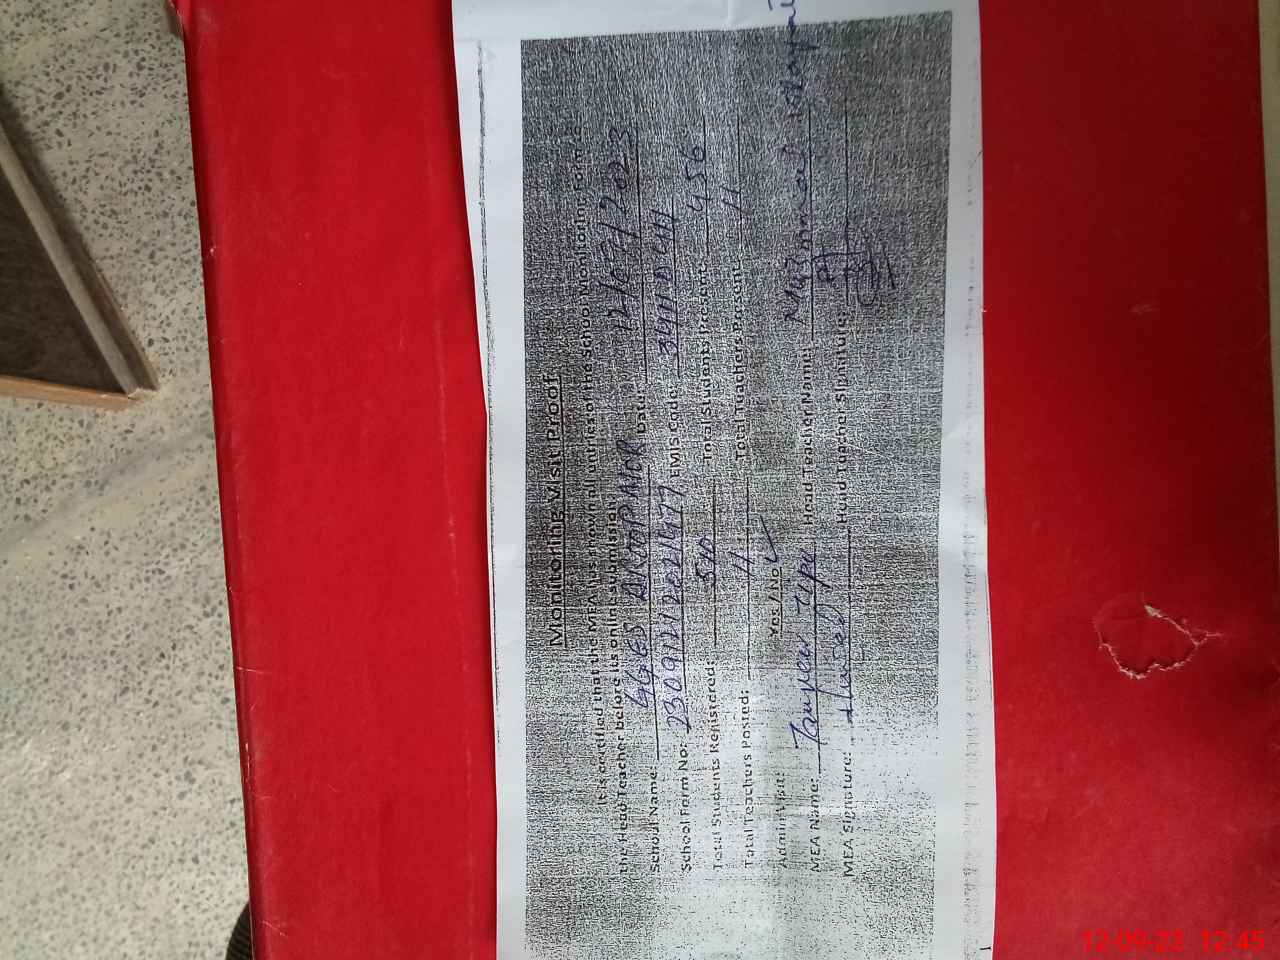 Monitoring Visit Proof
It is certified that the MEA has shown all entries of the School Monitoring Form to
the Head Teacher before its online submission.
School Name: GGES AROOP AHOR Date: 12/09/2023
School Form No: 230912122421477 EMIS Code:
Total Students Registered: 510 Total Students Present: 456
Total Teachers Posted: 11 Total Teachers Present: 11
Admin Visit: Yes / No ✓
MEA Name: Head Teacher Name:
MEA Signature: Head Teacher Signature:
12-09-23 12:45